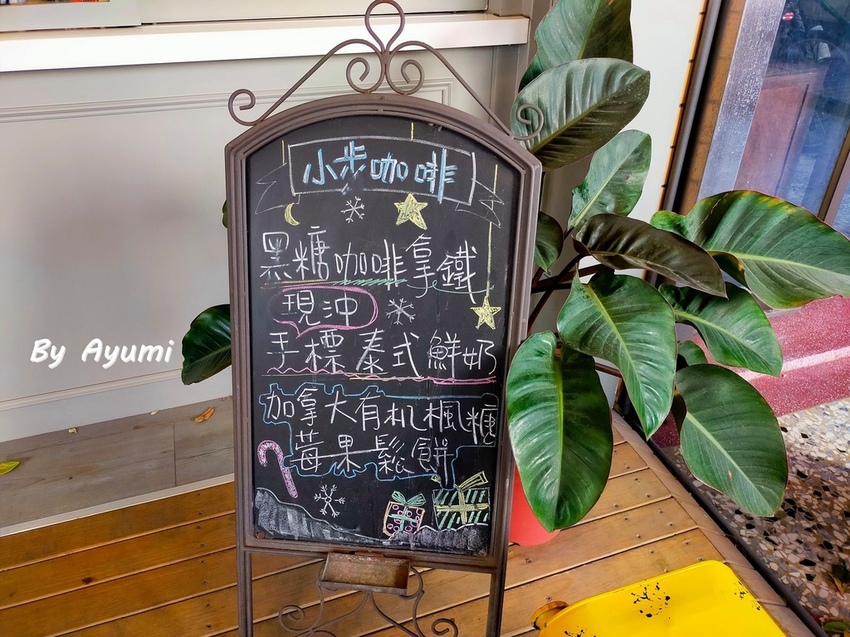 小步咖啡
黑糖咖啡拿鐵
現沖
手標泰式鮮奶
加拿大有机楓糖
莓果鬆餅
By Ayumi